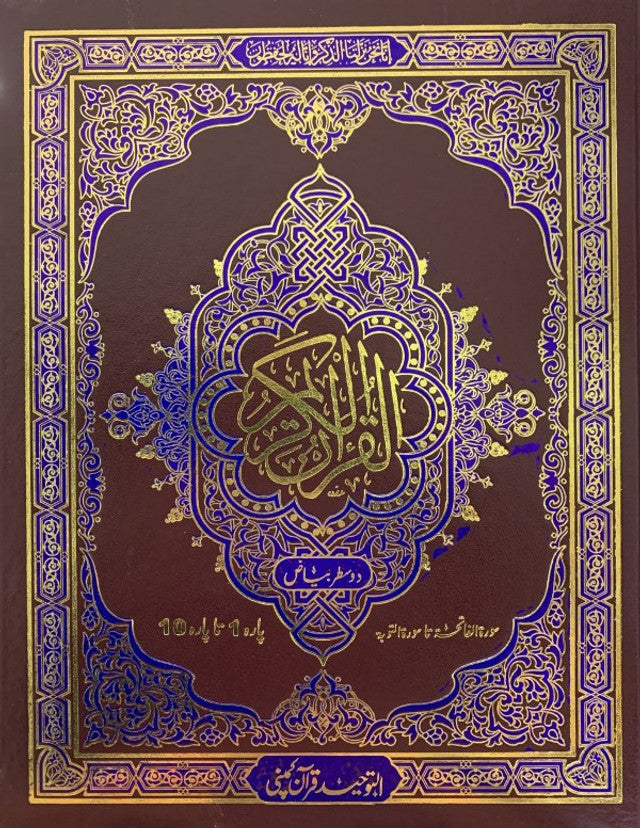 إنا نحن نزلنا الذكر وإنا له لحفظون
القرآن الكريم
دو سطر بیاض
سورة الفاتحة تا سورة التوبہ
پارہ 1 تا پارہ 10
التوحید قرآن کمپنی